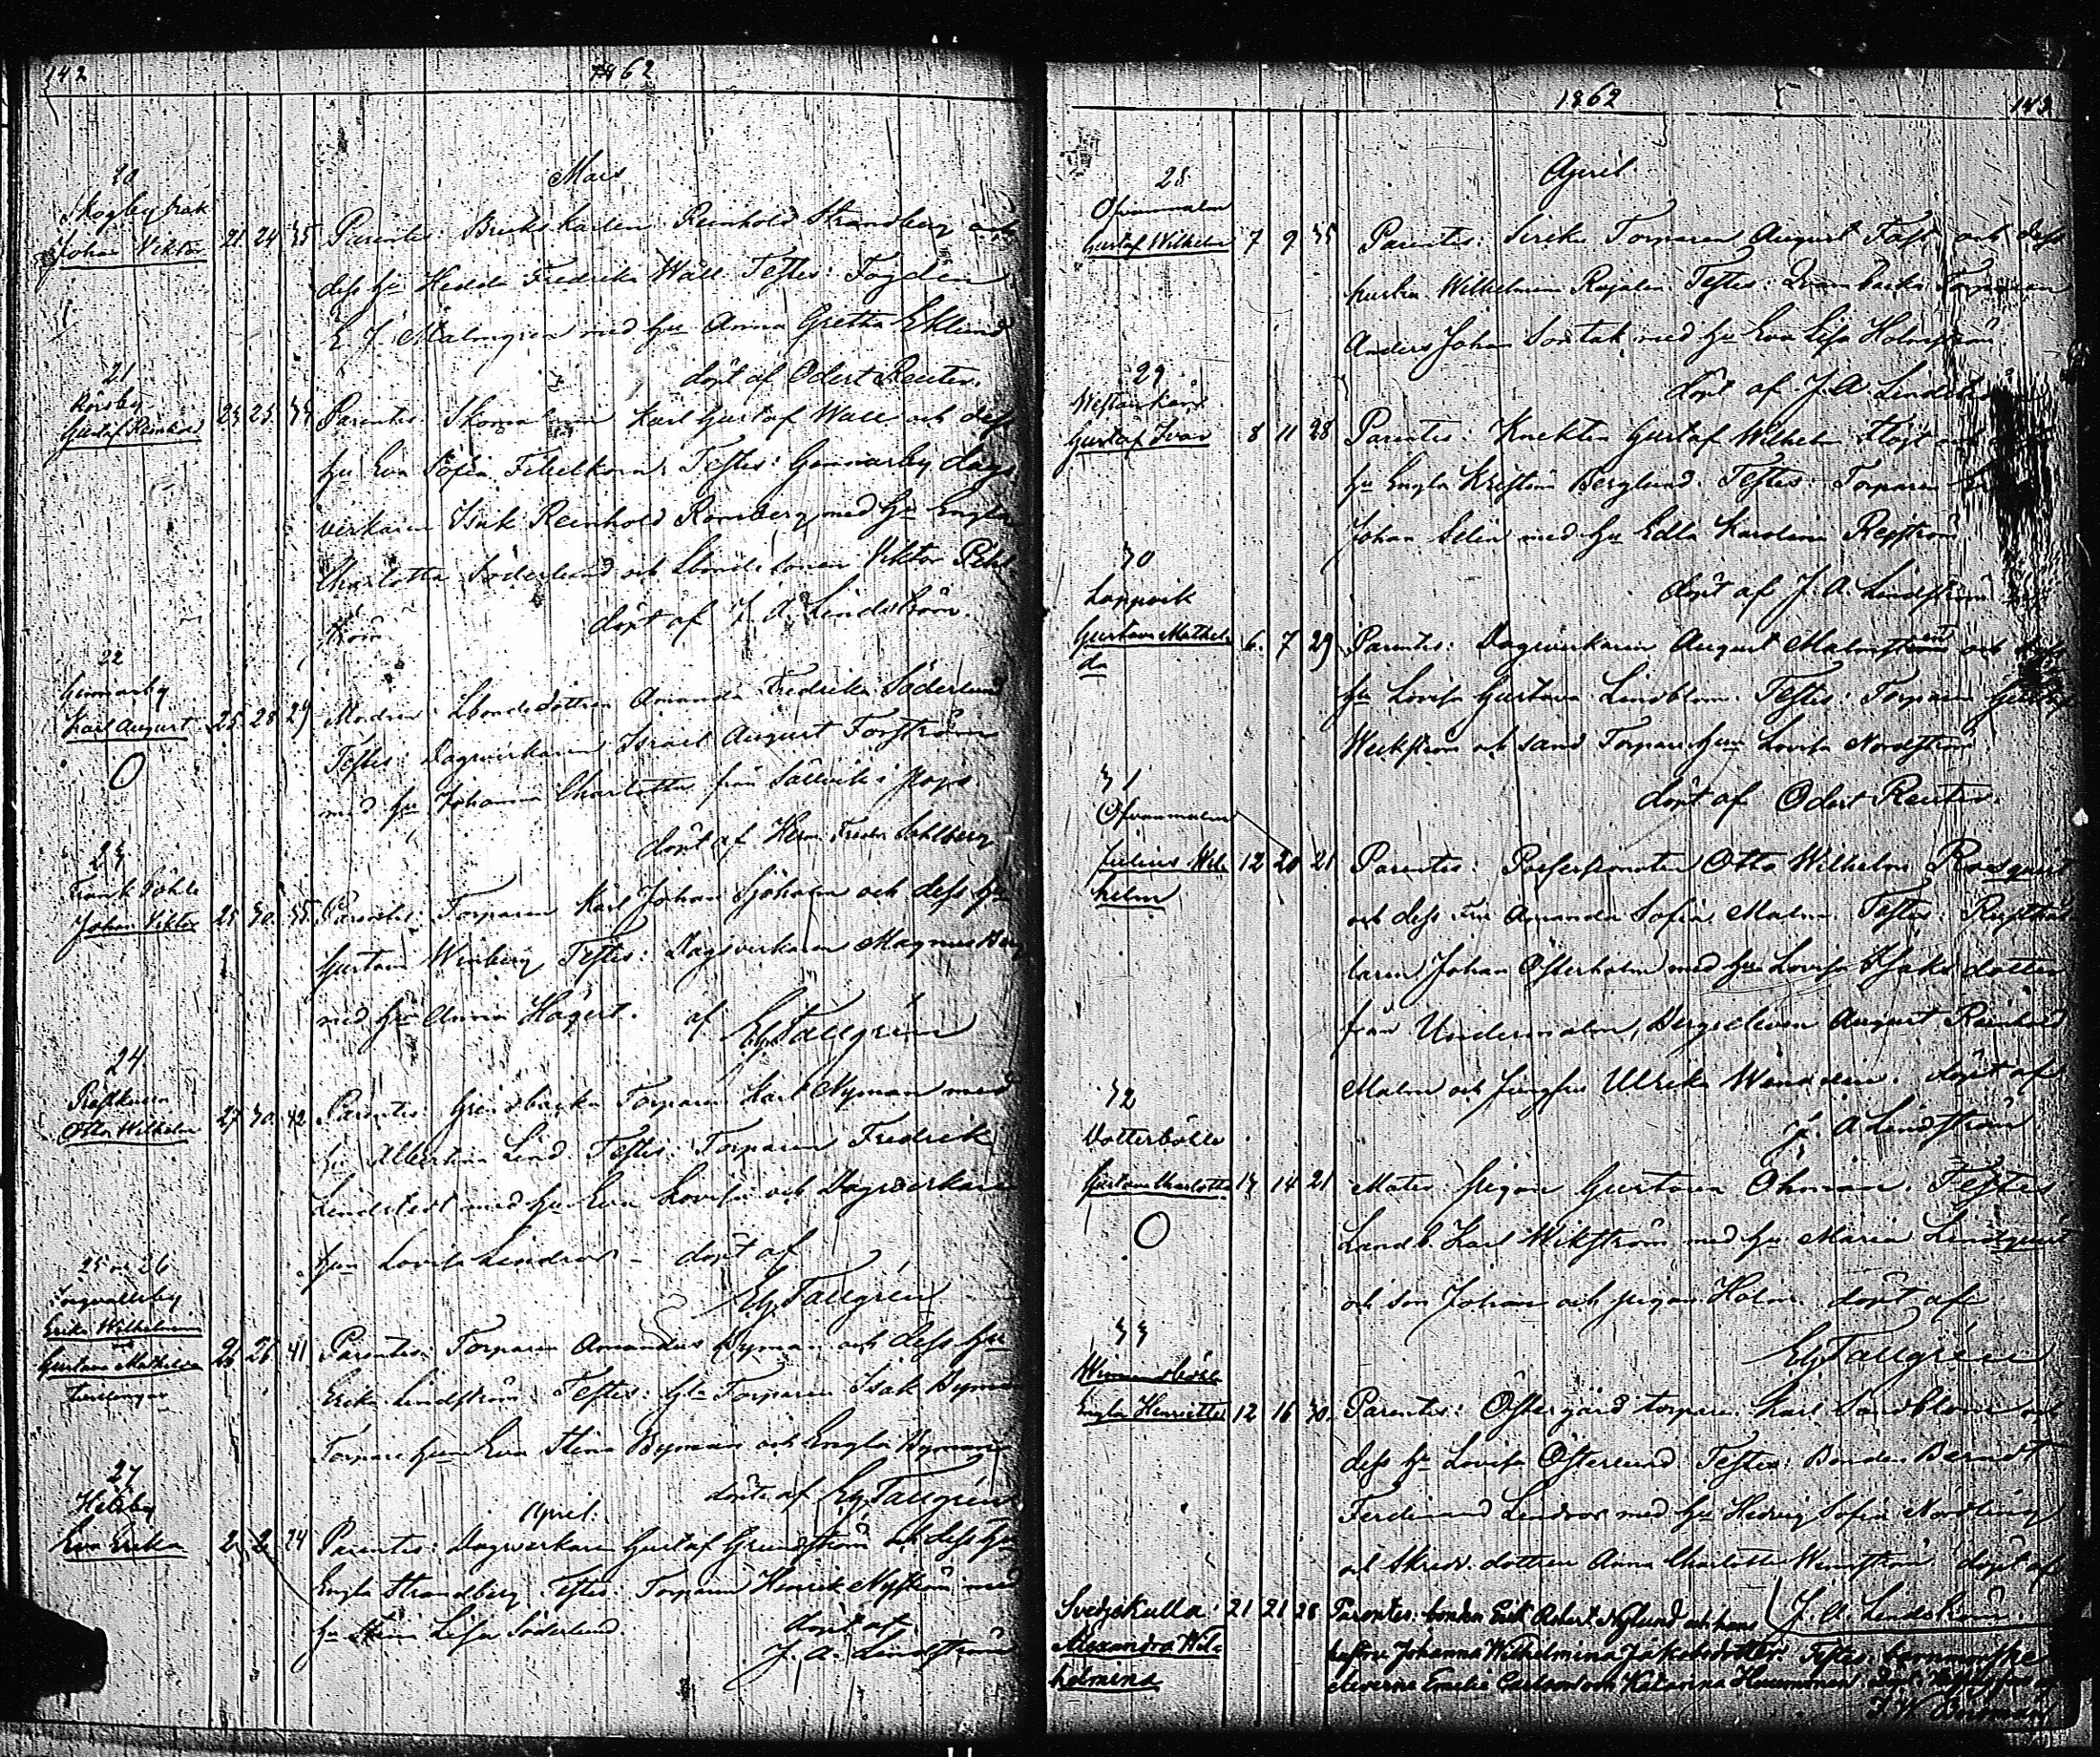 142
1862
Mars
20
Skogby bruk
Johan Viktor
21 24 35
Parentes: Brukskarlen Reinhold Strandberg och
dess hu Hedda Fredrika Wall Testes: Fogden
E J Malmgren med hu Anna Gretha Eklund
döpt af Odert Reuter.
21
Gustaf Reinhold
23 25
Parentes: Skomakaren Karl Gustaf Wall och dess
hu Eva Sofia Testes: Gennarby dags
verkaren Isak Reinhold Romberg med hu Engla
Charlotta Söderlund och Lbonde sonen Viktor Pehr
ström
döpt af J. A. Lindström.
22
Gennarby
Karl August
25 28 29
Modren: Lbondedottren Amanda Fredrika Söderlund
Testes: Dagsverkaren Israel August Forsström
med hu Johanna Charlotta från Sällvik i Pojo
döpt af Herm: Fredr Sohlberg
23
Johan Viktor
25 30 35
Parentes: Torparen Karl Johan Sjöholm och dess hu
Gustava Winberg Testes: Dagsverkaren Magnus Berg
med hu Anna Högert. af
Ely Tallgrén
24
Prästkulla
Otto Wilhelm
27 30 42
Parentes: Grindbacka Torparen Karl Nyman med
hu Albertina Lind Testes: Torparen Fredrik
Lindstedt med hu Eva Lovisa och Dagsverkare
hun Lovisa Lindroos - döpt af
Ely Tallgrén
25 o 26
Ingvallsby
Erika Wilhelmina
och
Gustava Mathilda
Tvillingar
26 41
Parentes: Torparen Amandus Byman och dess hu
Erika Lindström Testes: Gla Torparen Isak Byman
Torpare hun Eva Stina Byman och Engla Byman
döpte af Ely Tallgrén
27
Eva Erika
2 2 24
April.
Parentes: Dagsverkaren Gustaf Grundström och dess hu
Engla Strandberg Testes: Torparen Henrik Nyström med
hu Stina Lisa Söderlund
döpt af
J. A. Lindström
1862
143
April
28
Ofvanmalm
Gustaf Wilhelm
7 9 35
Parentes: Torparen August Fast och dess
hustru Wilhelmina Testes: Torparen
Anders Johan Sontak med hu Eva Lisa Holmström
döpt af J. A. Lindström
29
Westankärr
Gustaf Ivar
8 11 28
Parentes: Knekten Gustaf Wilhelm Höijt och dess
hu Engla Kristina Berglund. Testes: Torparen
Johan Selin med hu Edla Karolina Repström
döpt af J. A. Lindström
30
Lappvik
Gustava Mathil
da
6. 7 29
Parentes: Dagsverkaren August Malmström och dess
hu Lovisa Gustava Lindblom. Testes: Torparen Gustaf
Weckström och samt Torpare hun Lovisa Nordström
döpt af Odert Reuter.
31
Ofvanmalm
Julius Wil
helm
12 20 21
Parentes: Possessionaten Otto Wilhelm Rosqvist
och dess Fru Amanda Sofia Malm. Testes: Rusthål
laren Johan Österholm med hu Lovisa Isaks dotter
från Undermalm, Bergseleven August Reinhold
Malm och Jungfru Ulrika döpt af
J. A Lindström
32
Votterböle
Gustava Charlotta
13 14 21
Mater pigan Gustava Öhman. Testes
Landb. Karl Wikström med hu Maria Lindqvist
och son Johan och pigan Holm. döpt af
Ely Tallgrén
33
Engla Henriette
12 16 30.
Parentes: Östergård torpare Karl Sandblom och
dess hu Lovisa Österlund Testes: Bonden Berndt
Ferdinand Lindroos med hu Hedvig Sofia Nordling
och Skred. dottren Anna Charlotta Wennström döpt af
J. A. Lindström.
Svedjekulla
Alexandra Wil-
helmina
21 21 28
Parentes: bonden Erik Robert Nylund och hans
hustru Johanna Wilhelmina Jakobsdotter. Testes:
eleverna Emelie Carlsson och Katarina
J W